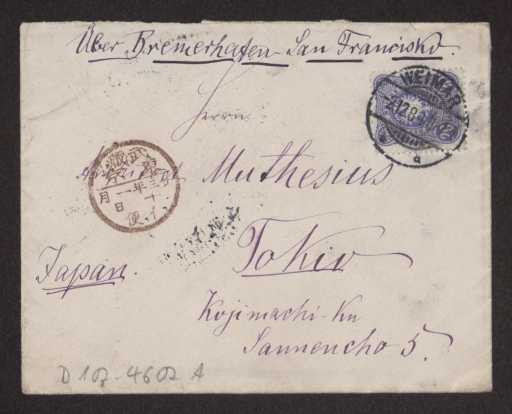 Über Bremerhafen - San Francisko.
WEIMAR
Herrn
Muthesius
年一月
日
便
Tokio
Japan.
Kojimachi-Ku
Sannencho 5.
D 102-4602 A